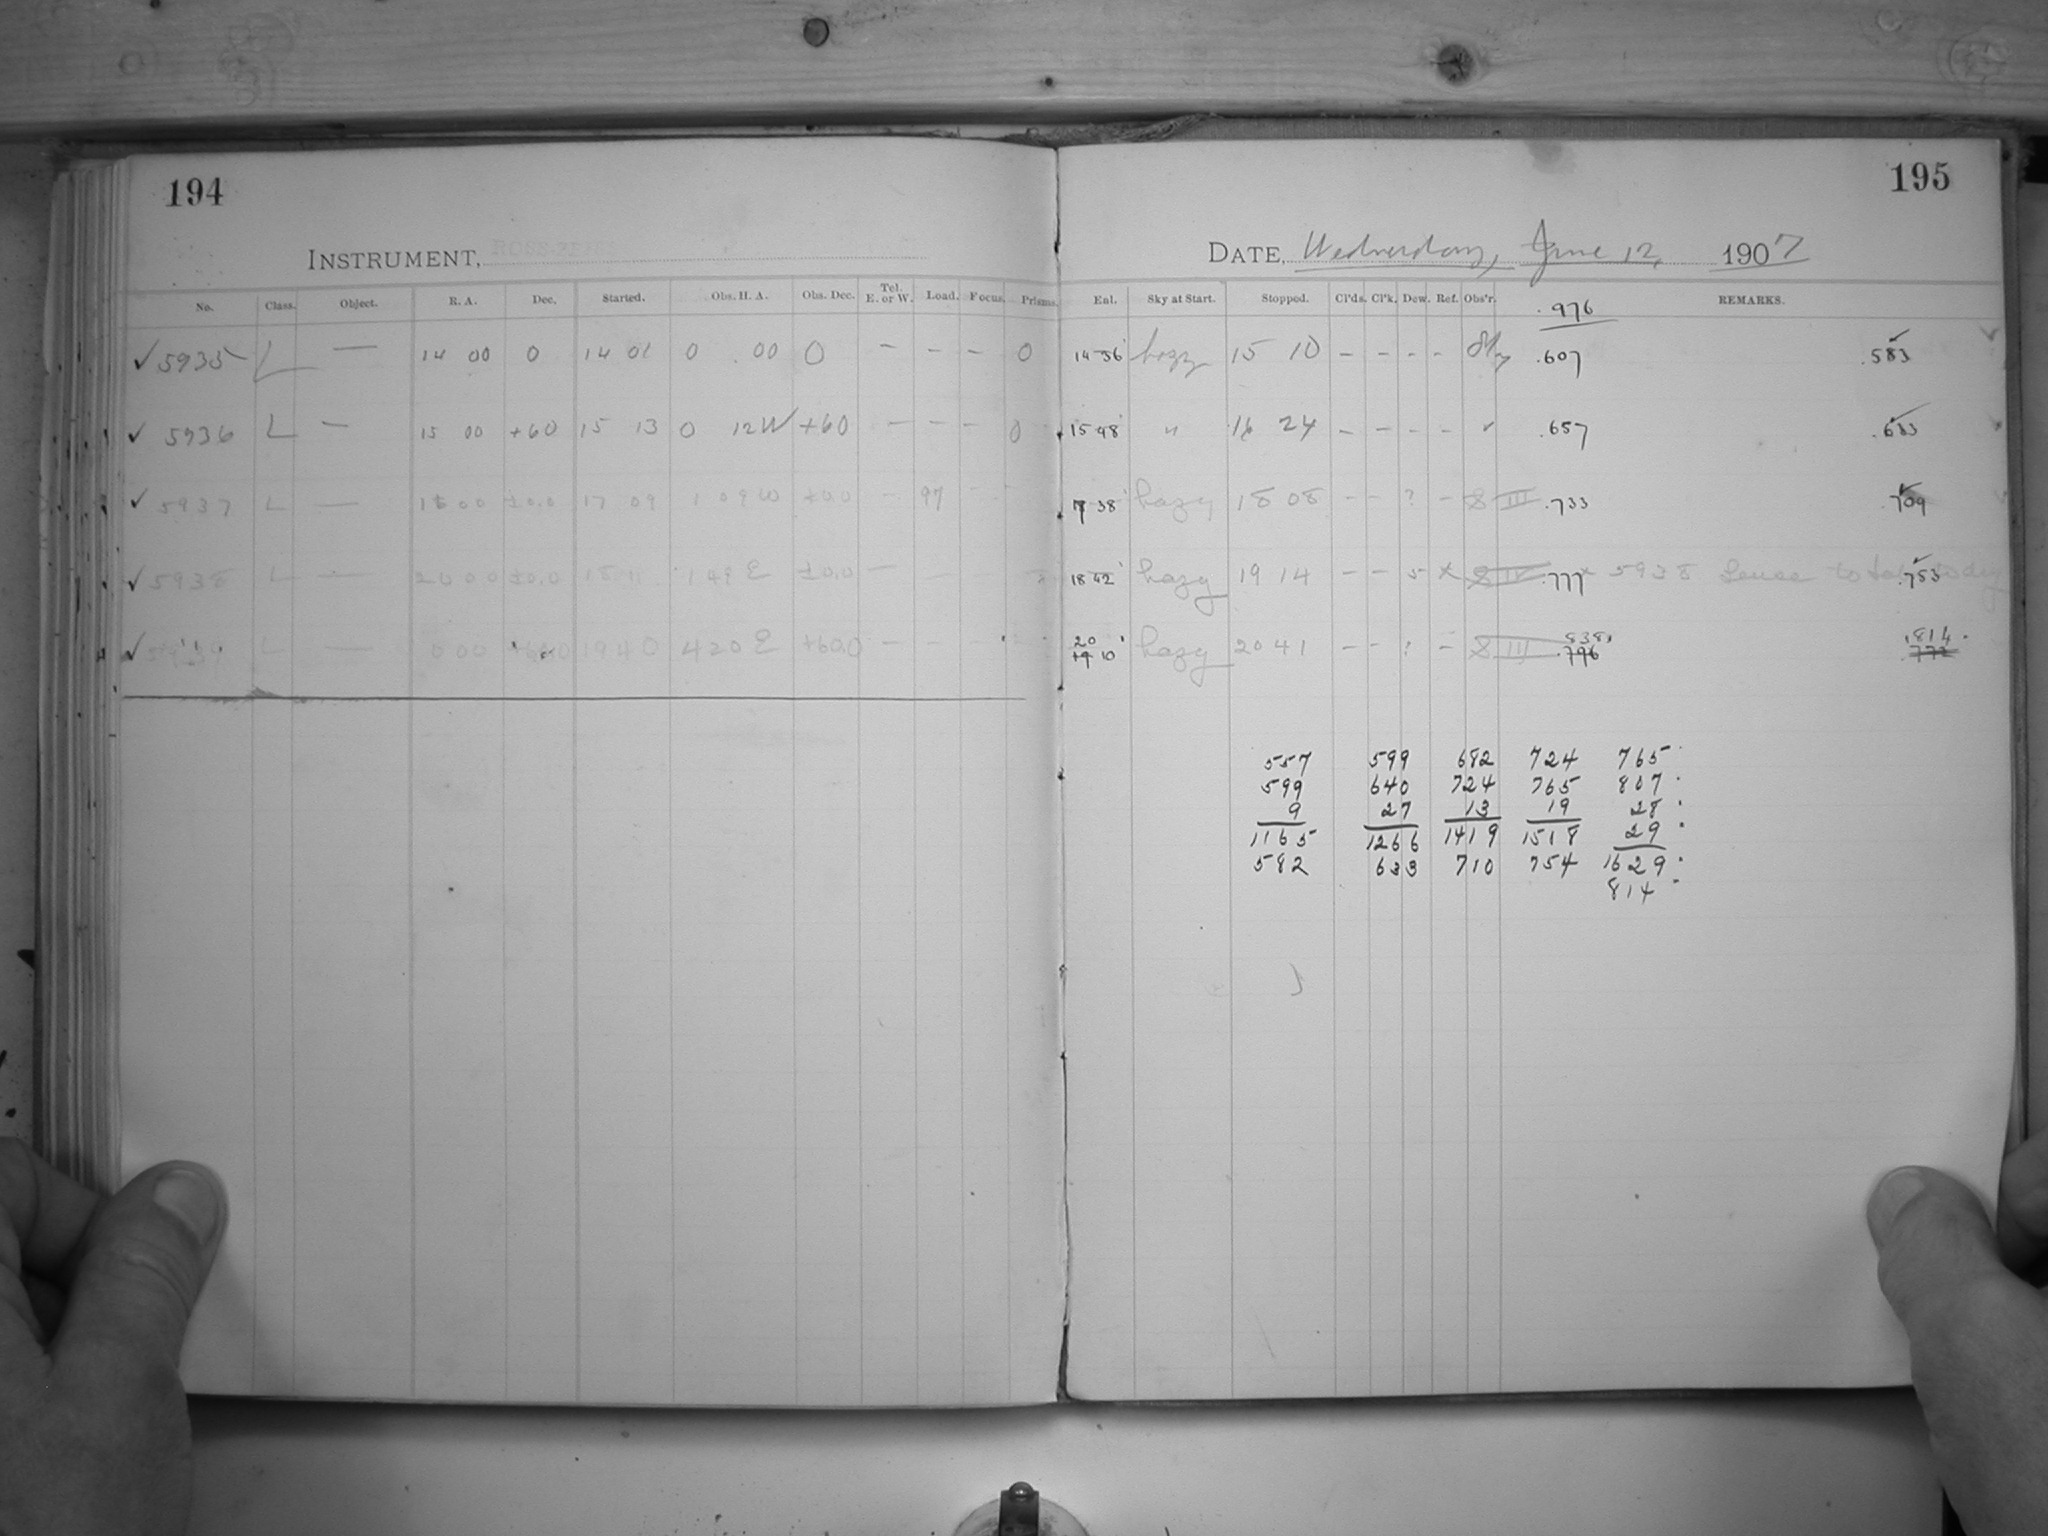 194
INSTRUMENT,
No. Class. Object. R. A. Dec. Started. Obs. H. A. Obs. Dec. Tel. E. or W. Load. Focus. Prisms.
✓ 5935 L — 14 00 0 14 01 0 .00 0 – – – 0
✓ 5936 L — 15 00 +60 15 13 0 12W +60 – – – 0
✓ 5937 L — 16 00 ±0.0 17 09 1 09 W ±0.0 – 97 – –
✓ 5938 L — 20 00 ±0.0 18 11 1 49 E ±0.0 – – –
✓ 5939 L — 0 00 +60.0 19 40 4 20 E +60.0 – – –
195
DATE, Wednesday, June 12, 1907
Eal. Sky at Start. Stopped. Cl'ds. Cl'k. Dew. Ref. Obs'r. .976 REMARKS.
14 36 hazy 15 10 – – – – .607 .583
15 48 " 16 24 – – – – ✓ .657 .633
17 38 hazy 18 08 – – ? – S III .733 .709
18 42 hazy 19 14 – – 5 x S IV .777 x 5938 .753
20 10 hazy 20 41 – – ? – S III .838 .796 .814 .772
557 599 682 724 765
599 640 724 765 807
9 27 13 19 28
1165 1266 1419 1518 29
582 633 710 754 1629
814